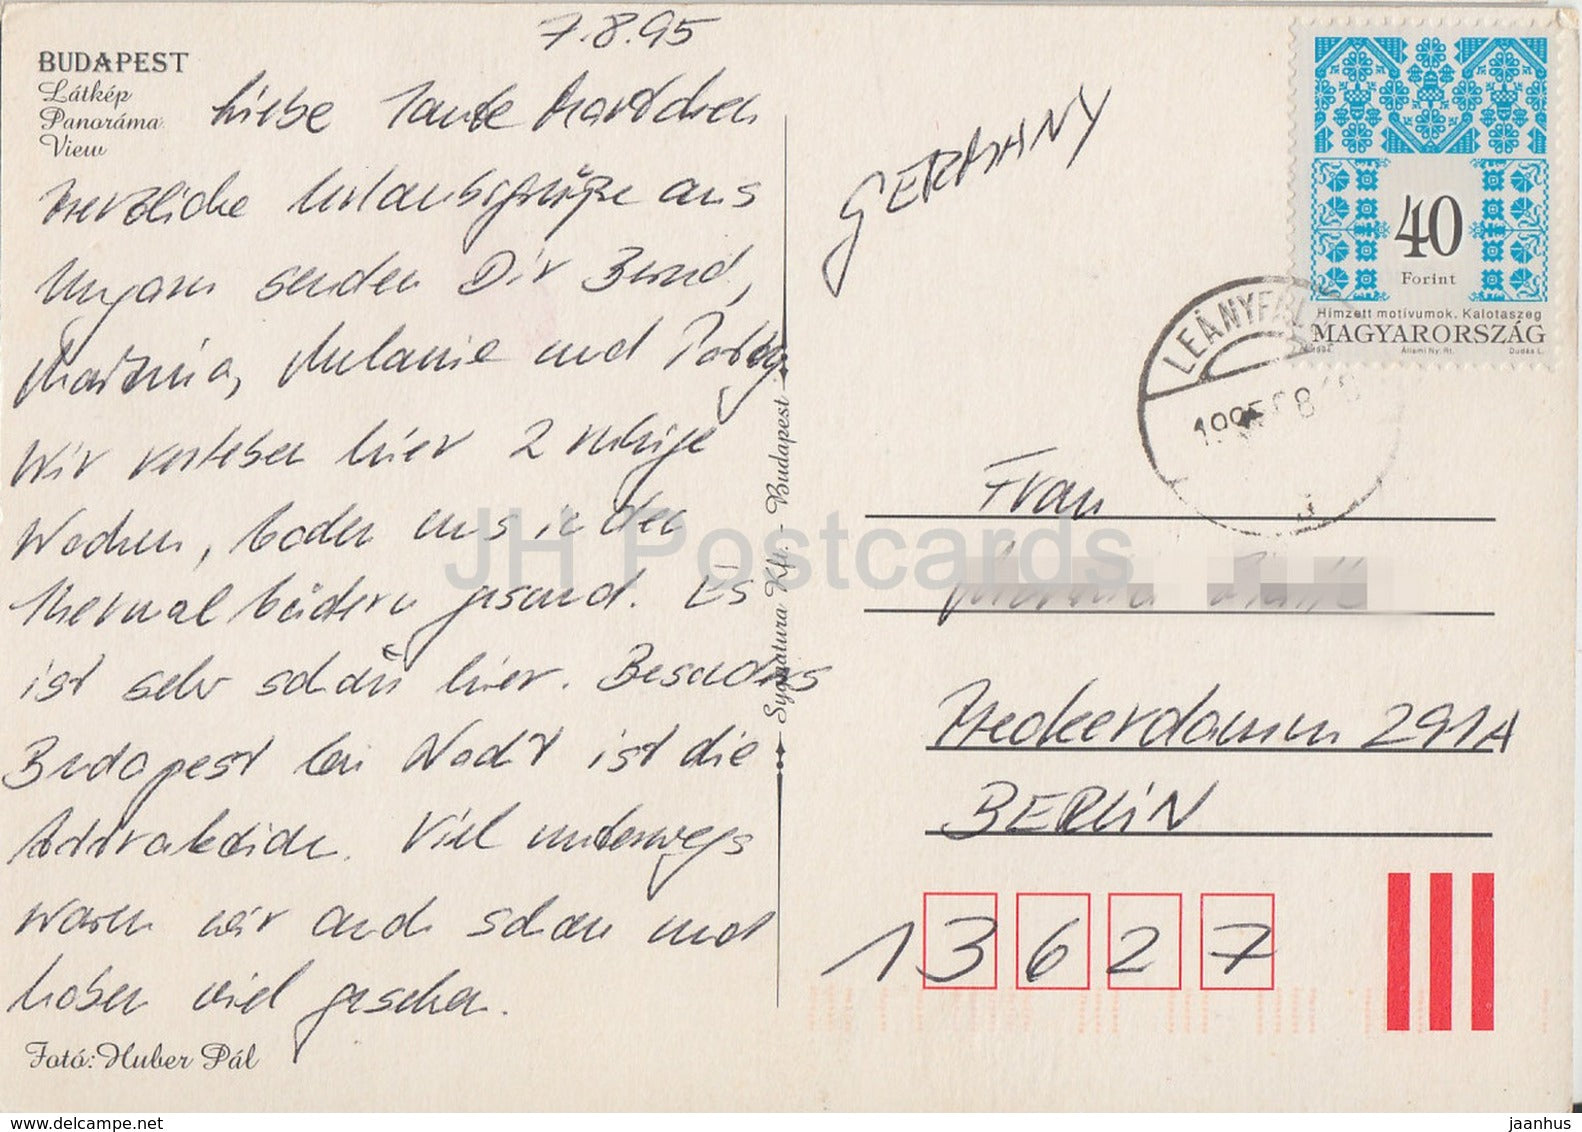 7.8.95
BUDAPEST
Látkép
Panoráma
View
Liebe Tante
Herzliche Urlaubsgrüße aus
Ungarn senden Dir Bernd,
Martina, Melanie und
Wir verleben hier 2 ruhige
Wochen, baden uns in den
Thermalbädern gesund. Es
ist sehr schön hier. Besonders
Budapest bei Nacht ist die
Attraktion. Viel unterwegs
waren wir auch schon und
haben viel gesehen.
Fotó: Huber Pál
Sygnatura Kft. - Budapest
GERMANY
40
Forint
Hímzett motívumok. Kalotaszeg
MAGYARORSZÁG
1994 Állami Ny. Rt. Dudás L.
LEÁNYFAL
Frau
Heckerdamm 291A
BERLIN
13627
JH Postcards
www.delcampe.net
jaanhus